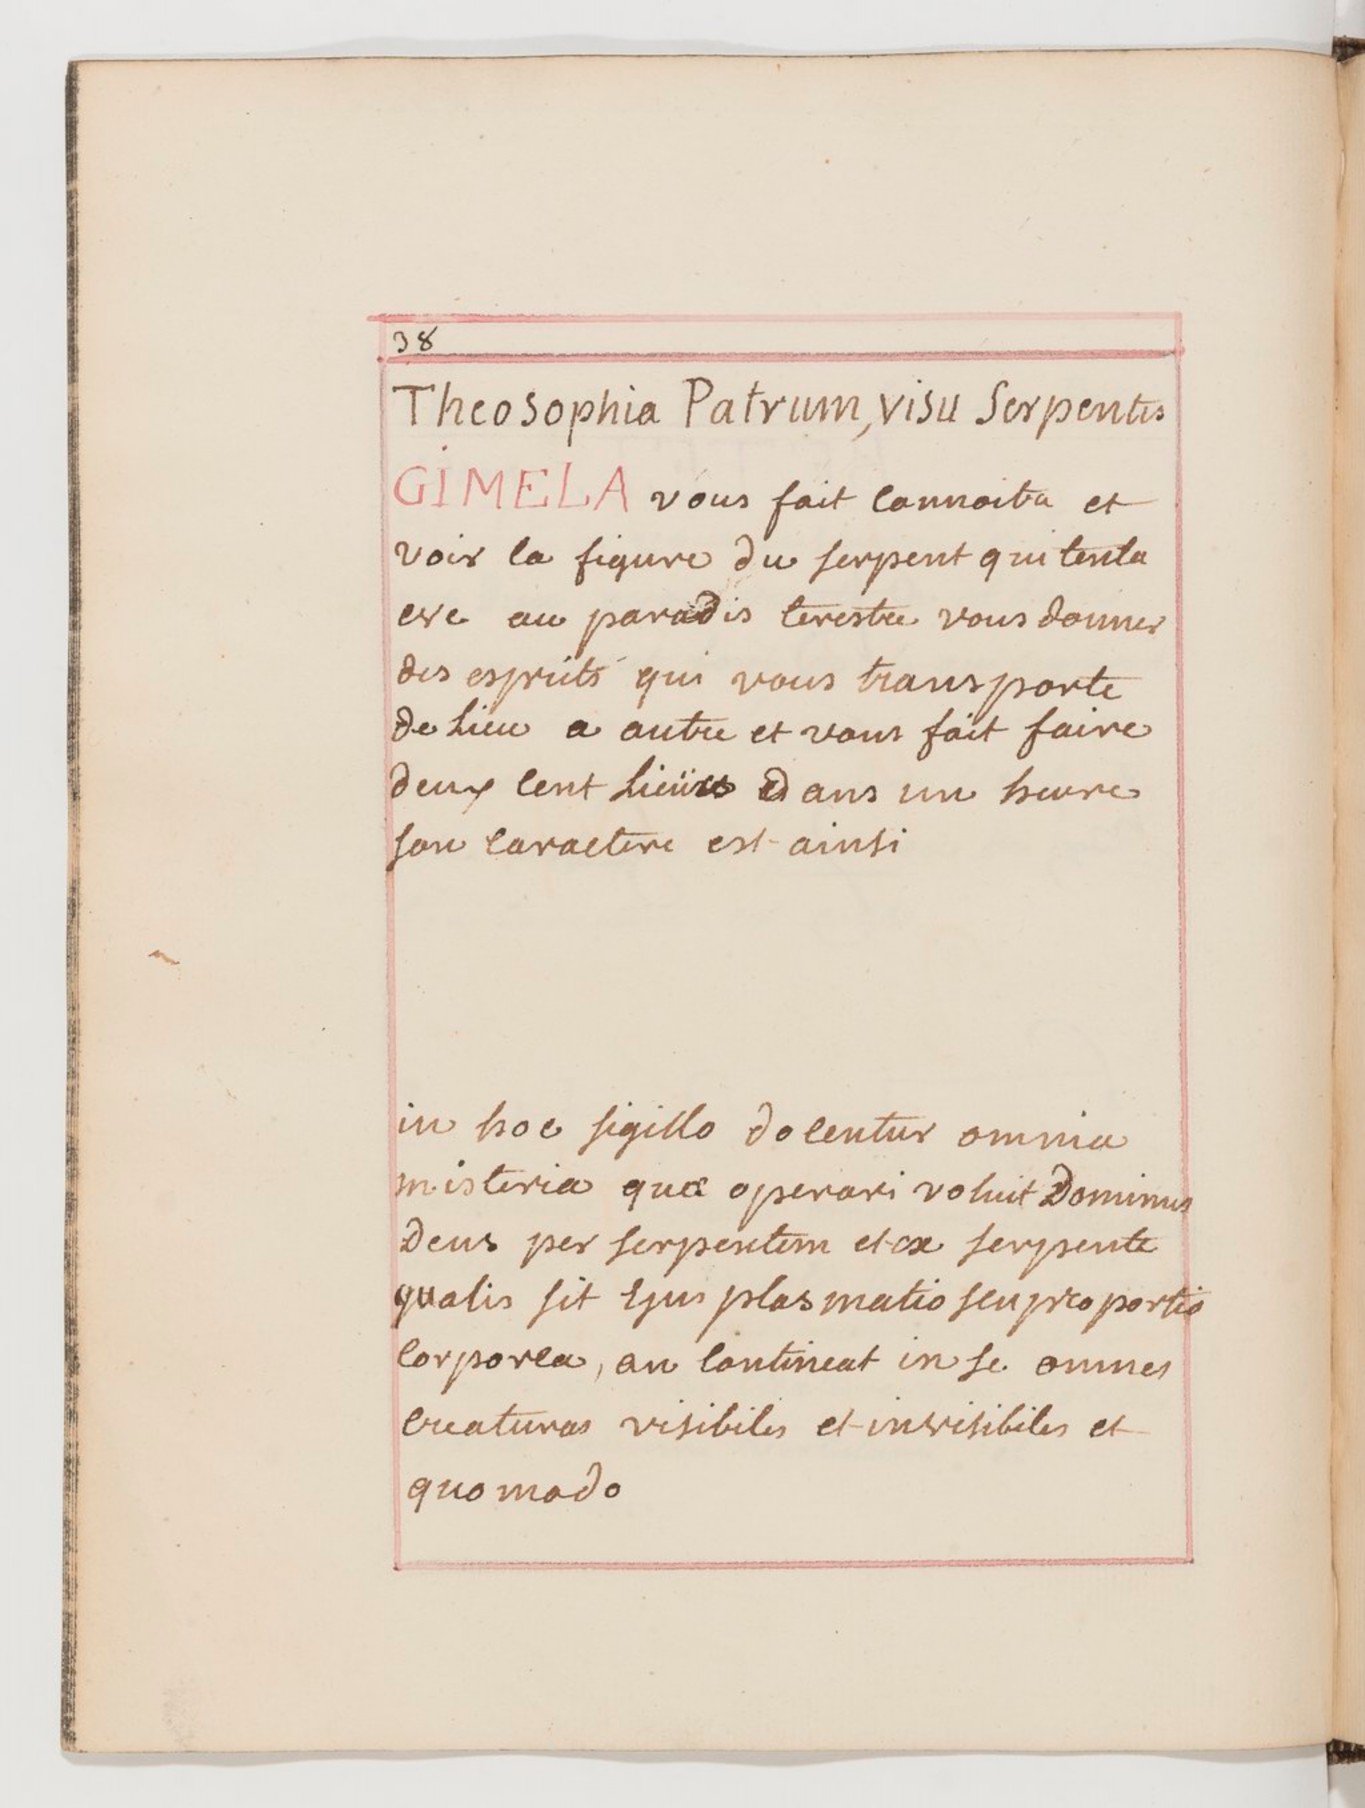 38
Theosophia Patrum, visu Serpentis
GIMELA vous fait connoitre et
voir la figure du serpent qui tenta
eve au paradis terestre vous donner
des esprits qui vous transporte
de lieu a autre et vous fait faire
deux cent lieües dans un heure
son caractere est ainsi
in hoc sigillo docentur omnia
misteria quæ operari voluit Dominus
Deus per serpentem et ex serpente
qualis sit Ejus plasmatio seu proportio
corporea, an contineat in se omnes
creaturas visibiles et invisibiles et
quomodo